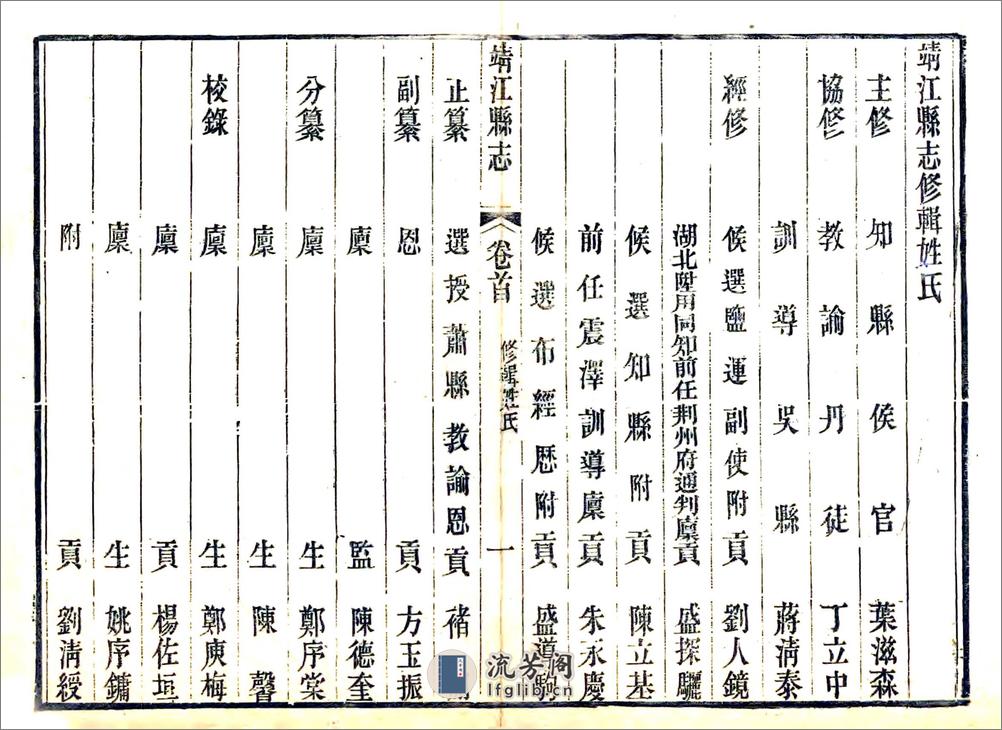 靖江縣志修輯姓氏
主修 知縣侯官 葉滋森
協修 教諭丹徒 丁立中
訓導吳縣 蔣清泰
經修 候選鹽運副使附貢 劉人鏡
湖北陞用同知前任荆州府通判廩貢 盛探驪
候選知縣附貢 陳立基
前任震澤訓導廩貢 朱永慶
候選布經歷附貢 盛道
靖江縣志 卷首 修輯姓氏 一
正纂 選授蕭縣教諭恩貢 褚
副纂 恩貢 方玉振
廩監 陳德奎
分纂 廩生 鄭序棠
廩生 陳馨
校錄 廩生 鄭庚梅
廩貢 楊佐垣
廩生 姚序鏞
附貢 劉清綬
流芳阁
lfglib.cn